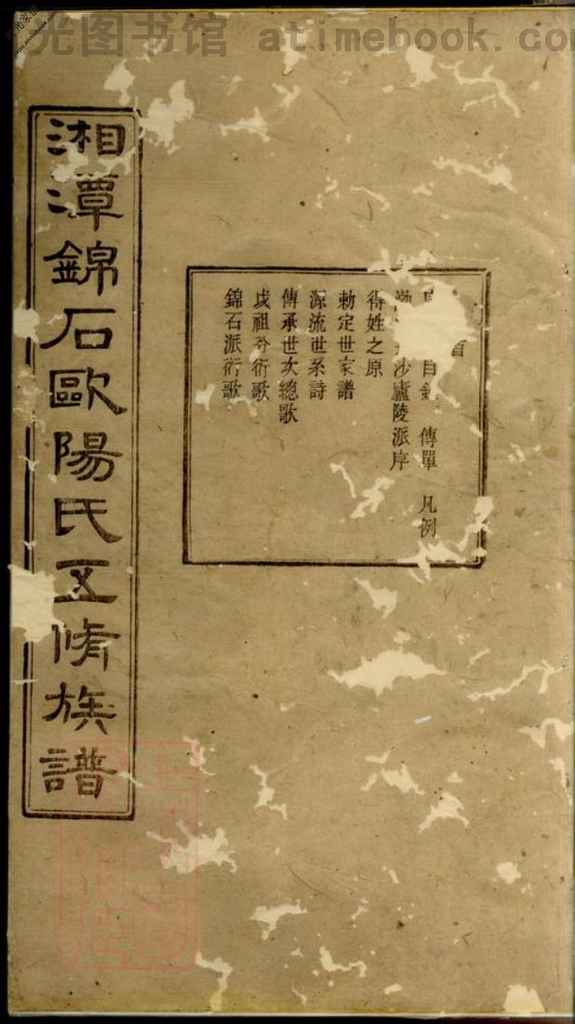 光图书馆 atimebook.com
首
目錄 傳單 凡例
沙廬陵派序
得姓之原
勅定世家譜
源流世系詩
傳承世次總歌
成祖兮衍歌
錦石派衍歌
湘潭錦石歐陽氏五脩族譜